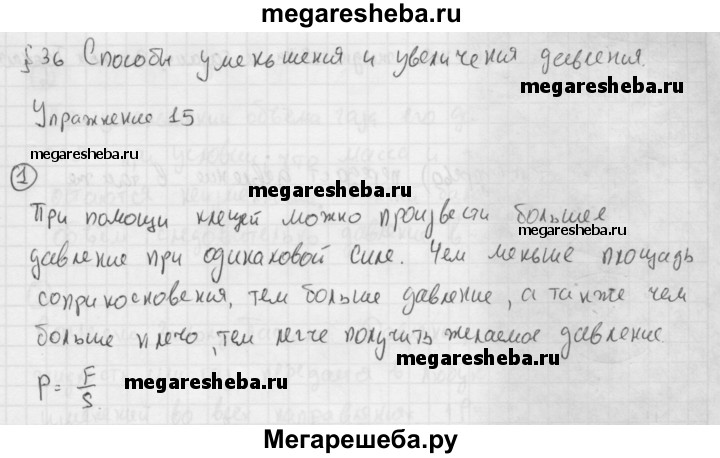 megaresheba.ru
§36 Способы уменьшения и увеличения давления.
megaresheba.ru
Упражнение 15
megaresheba.ru
1
megaresheba.ru
При помощи клещей можно произвести большее
megaresheba.ru
давление при одинаковой силе. Чем меньше площадь
соприкосновения, тем больше давление, а также чем
больше плечо, тем легче получить желаемое давление.
megaresheba.ru
P = F/S.
megaresheba.ru
Мегарешеба.ру